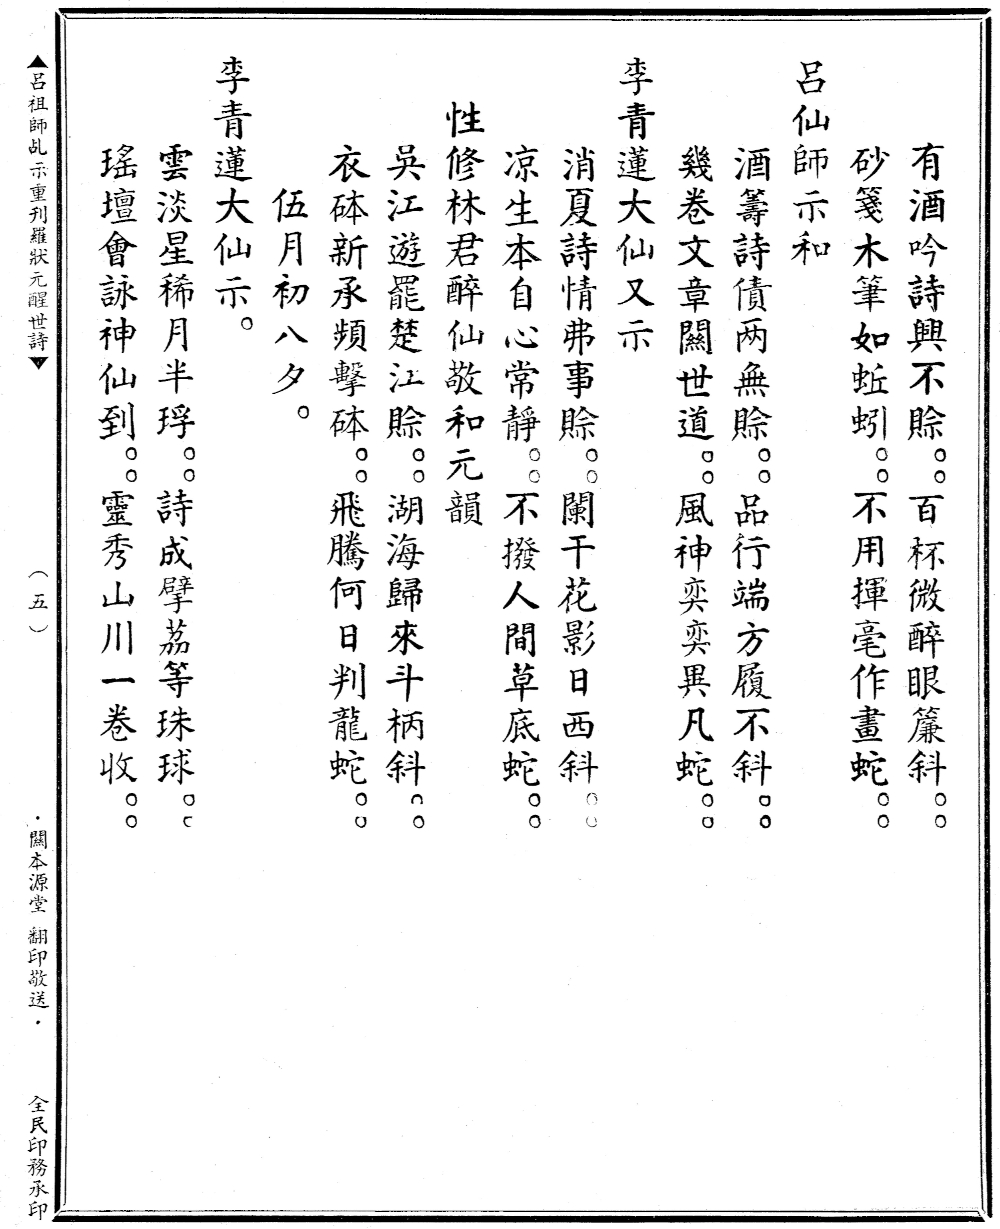 有酒吟詩興不賒。。百杯微醉眼簾斜。。
砂箋木筆如蚯蚓。。不用揮毫作畫蛇。。
呂仙師示和
酒籌詩債两無賒。。品行端方履不斜。。
幾卷文章關世道。。風神奕奕異凡蛇。。
李青蓮大仙又示
消夏詩情弗事賒。。闌干花影日西斜。。
凉生本自心常靜。。不撥人間草底蛇。。
性修林君醉仙敬和元韻
吳江遊罷楚江賒。。湖海歸來斗柄斜。。
衣砵新承頻擊砵。。飛騰何日判龍蛇。。
伍月初八夕。
李青蓮大仙示。
雲淡星稀月半琈。。詩成擘荔等珠球。。
瑤壇會詠神仙到。。靈秀山川一卷收。。
▲呂祖師乩示重刋羅狀元醒世詩▼
（五）
·關本源堂 翻印敬送·
全民印務承印